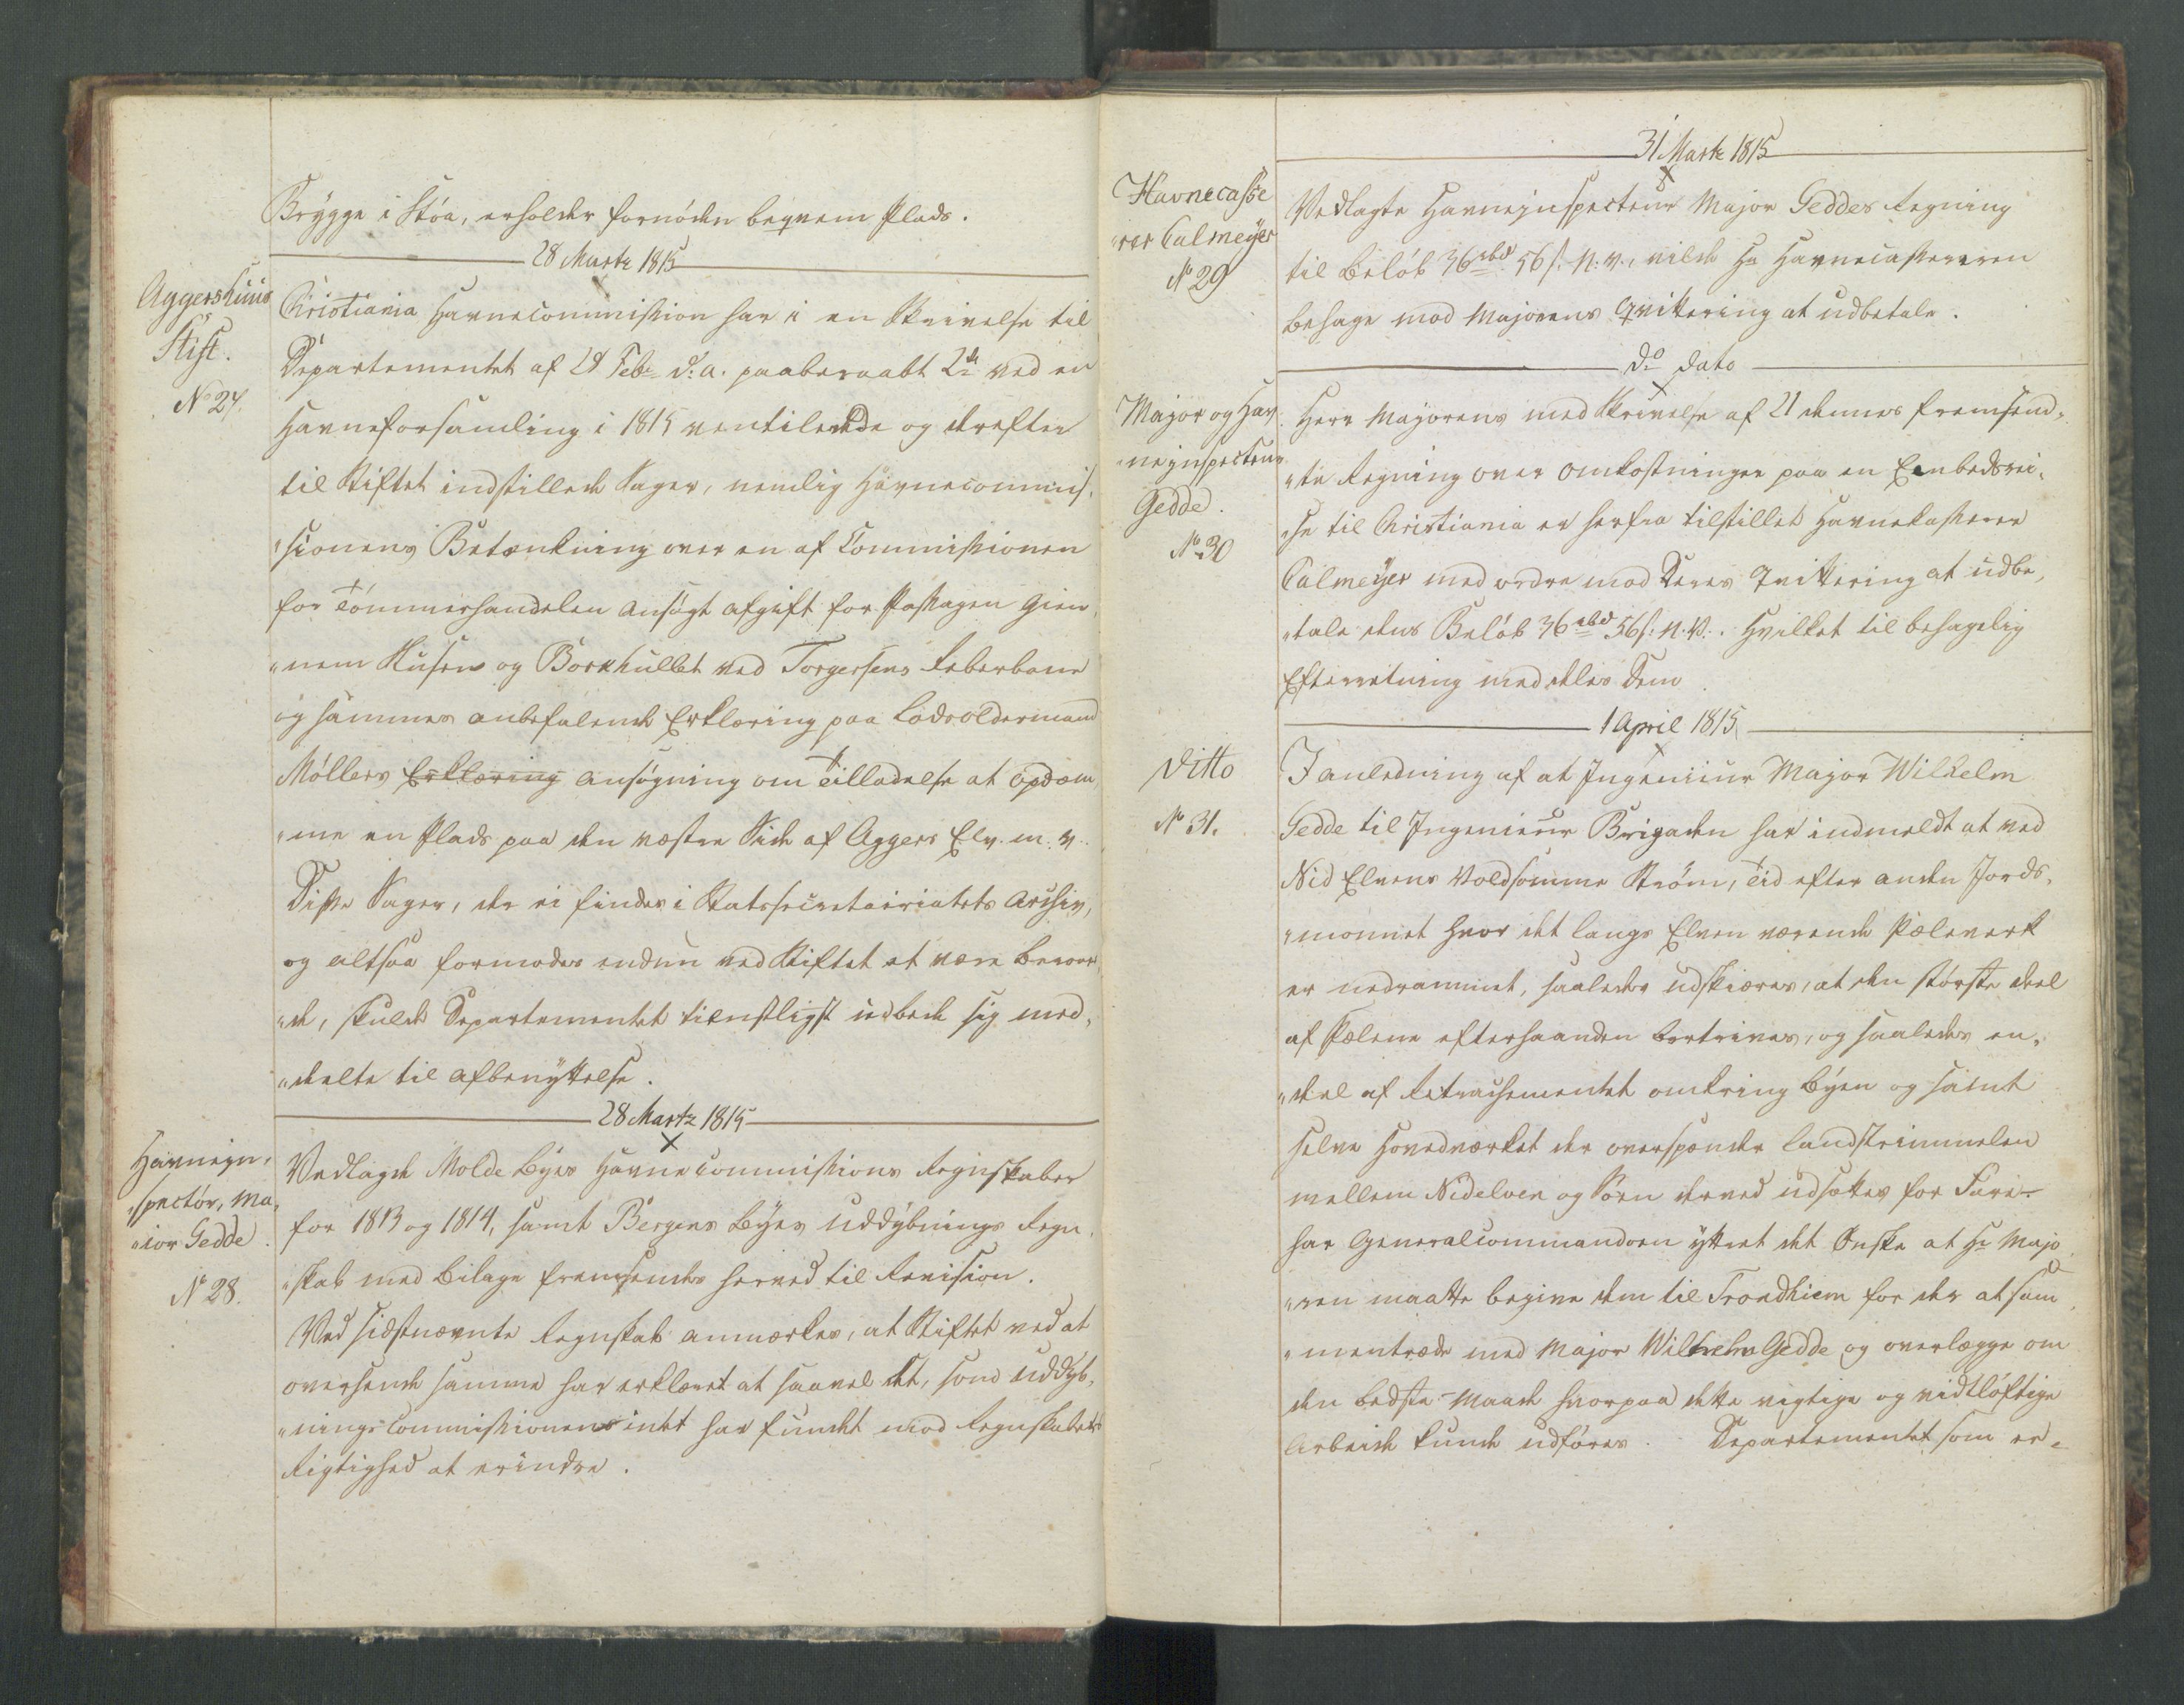 Brygge i Stöa, erholder fornöden beqvem Plads.
28 Marts 1815
Aggershuus
Stift.
No 27.
Christiania Havnecommission har i en Skrivelse til
Departementet af 28 Feb. d. a. paaberaabt 2de ved en
Havneforsamling i 1815 ventilerede og derefter
til Stiftet indstillede Sager, nemlig Havnecommis-
"sionens Betænkning over en af Commissionen
for Tömmerhandelen ansögt Afgift for Passagen gien-
"nem Slusen og Borkhullet ved Torgersens Reberbane
og sammes anbefalende Erklæring paa Lodsoldermand
Möllers Erklæring Ansögning om Tilladelse at opdæm-
"me en Plads paa den væstre Side af Aggers Elv. m. v.
Disse Sager, der ei findes i Statssecretairiatets Archiv,
og altsaa formodes endnu ved Stiftet at være beroen-
"de, skulde Departementet tienstligst udbede sig med-
"deelte til Afbenyttelse.
28 Marts 1815
Havnein-
"spectör, Ma-
"ior Gedde.
No 28.
Vedlagde Molde Byes Havne Commissions Regnskaber
for 1813 og 1814, samt Bergens Byes Uddybnings Regn-
"skab med Bilage fremsendes herved til Revision.
Ved sidstnævnte Regnskab anmærkes, at Stiftet ved at
oversende samme har erklæret at saavel det, som Uddyb-
"nings Commissionen intet har fundet mod Regnskabets
Rigtighed at erindre.
31 Marts 1815
Havnecasse
"rer Calmeyer
No 29
Vedlagte Havneinspecteur Major Geddes Regning
til Belöb 36 rbd 56 s. N. V., vilde Hr Havnecassereren
behage mod Majorens Qvittering at udbetale.
do Dato
Major og Hav-
"neinspecteur
Gedde.
No 30
Herr Majorens med Skrivelse af 21 dennes fremsend-
"te Regning over Omkostninger paa en Embedsrei-
"se til Christiania er herfra tilstillet Havnekasserer
Calmeyer med ordre mod Deres Qvittering at udbe-
"tale dens Belöb 36 rbd 56 s. N. V.. Hvilket til behagelig
Efterretning meddeles Dem.
1 April 1815
Ditto
No 31.
I anledning af at Ingenieur Major Wilhelm
Gedde til Ingenieur Brigaden har indmeldt at ved
Nid Elvens voldsomme Ström, Tid efter anden Jords-
"monnet hvor det langs Elven værende Pæleverk
er nedrammet, saaledes udskiæres, at den störste deel
af Pælene efterhaanden bortrives, og saaledes en-
"deel af Retrachementet omkring Byen og samt
selve Hovedværket der overspænder Landstrimmelen
mellem Nidelven og Söen derved udsættes for Fare
har Generalcommandoen yttret det Önske at Hr Majo-
"ren maatte begive dem til Trondhiem for der at sam-
"mentræde med Major Wilhelm Gedde og overlægge om
den bedste Maade hvorpaa dette vigtige og vidtlöftige
Arbeide kunde udföres. Departementet som er-